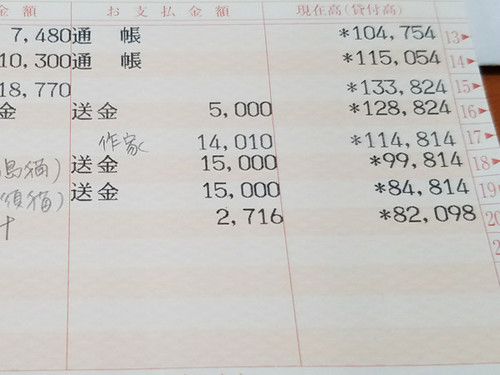 金額 お支払金額 現在高(貸付高)
7,480 通帳 *104,754 13▶
10,300 通帳 *115,054 14▶
18,770 *133,824 15▶
金 送金 5,000 *128,824 16▶
作家 14,010 *114,814 17▶
島猫) 送金 15,000 *99,814 18▶
須猫) 送金 15,000 *84,814 19
計 2,716 *82,098 20